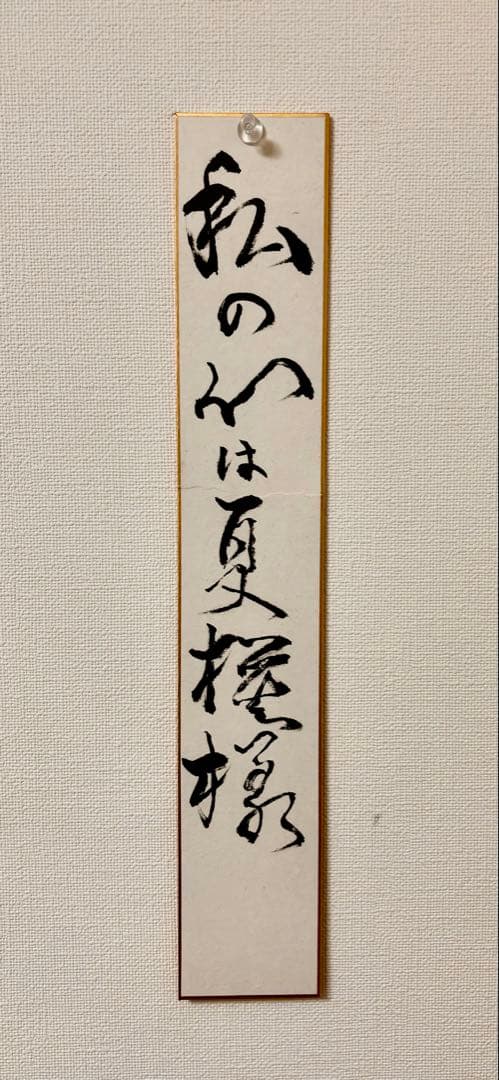 私の心は夏模様